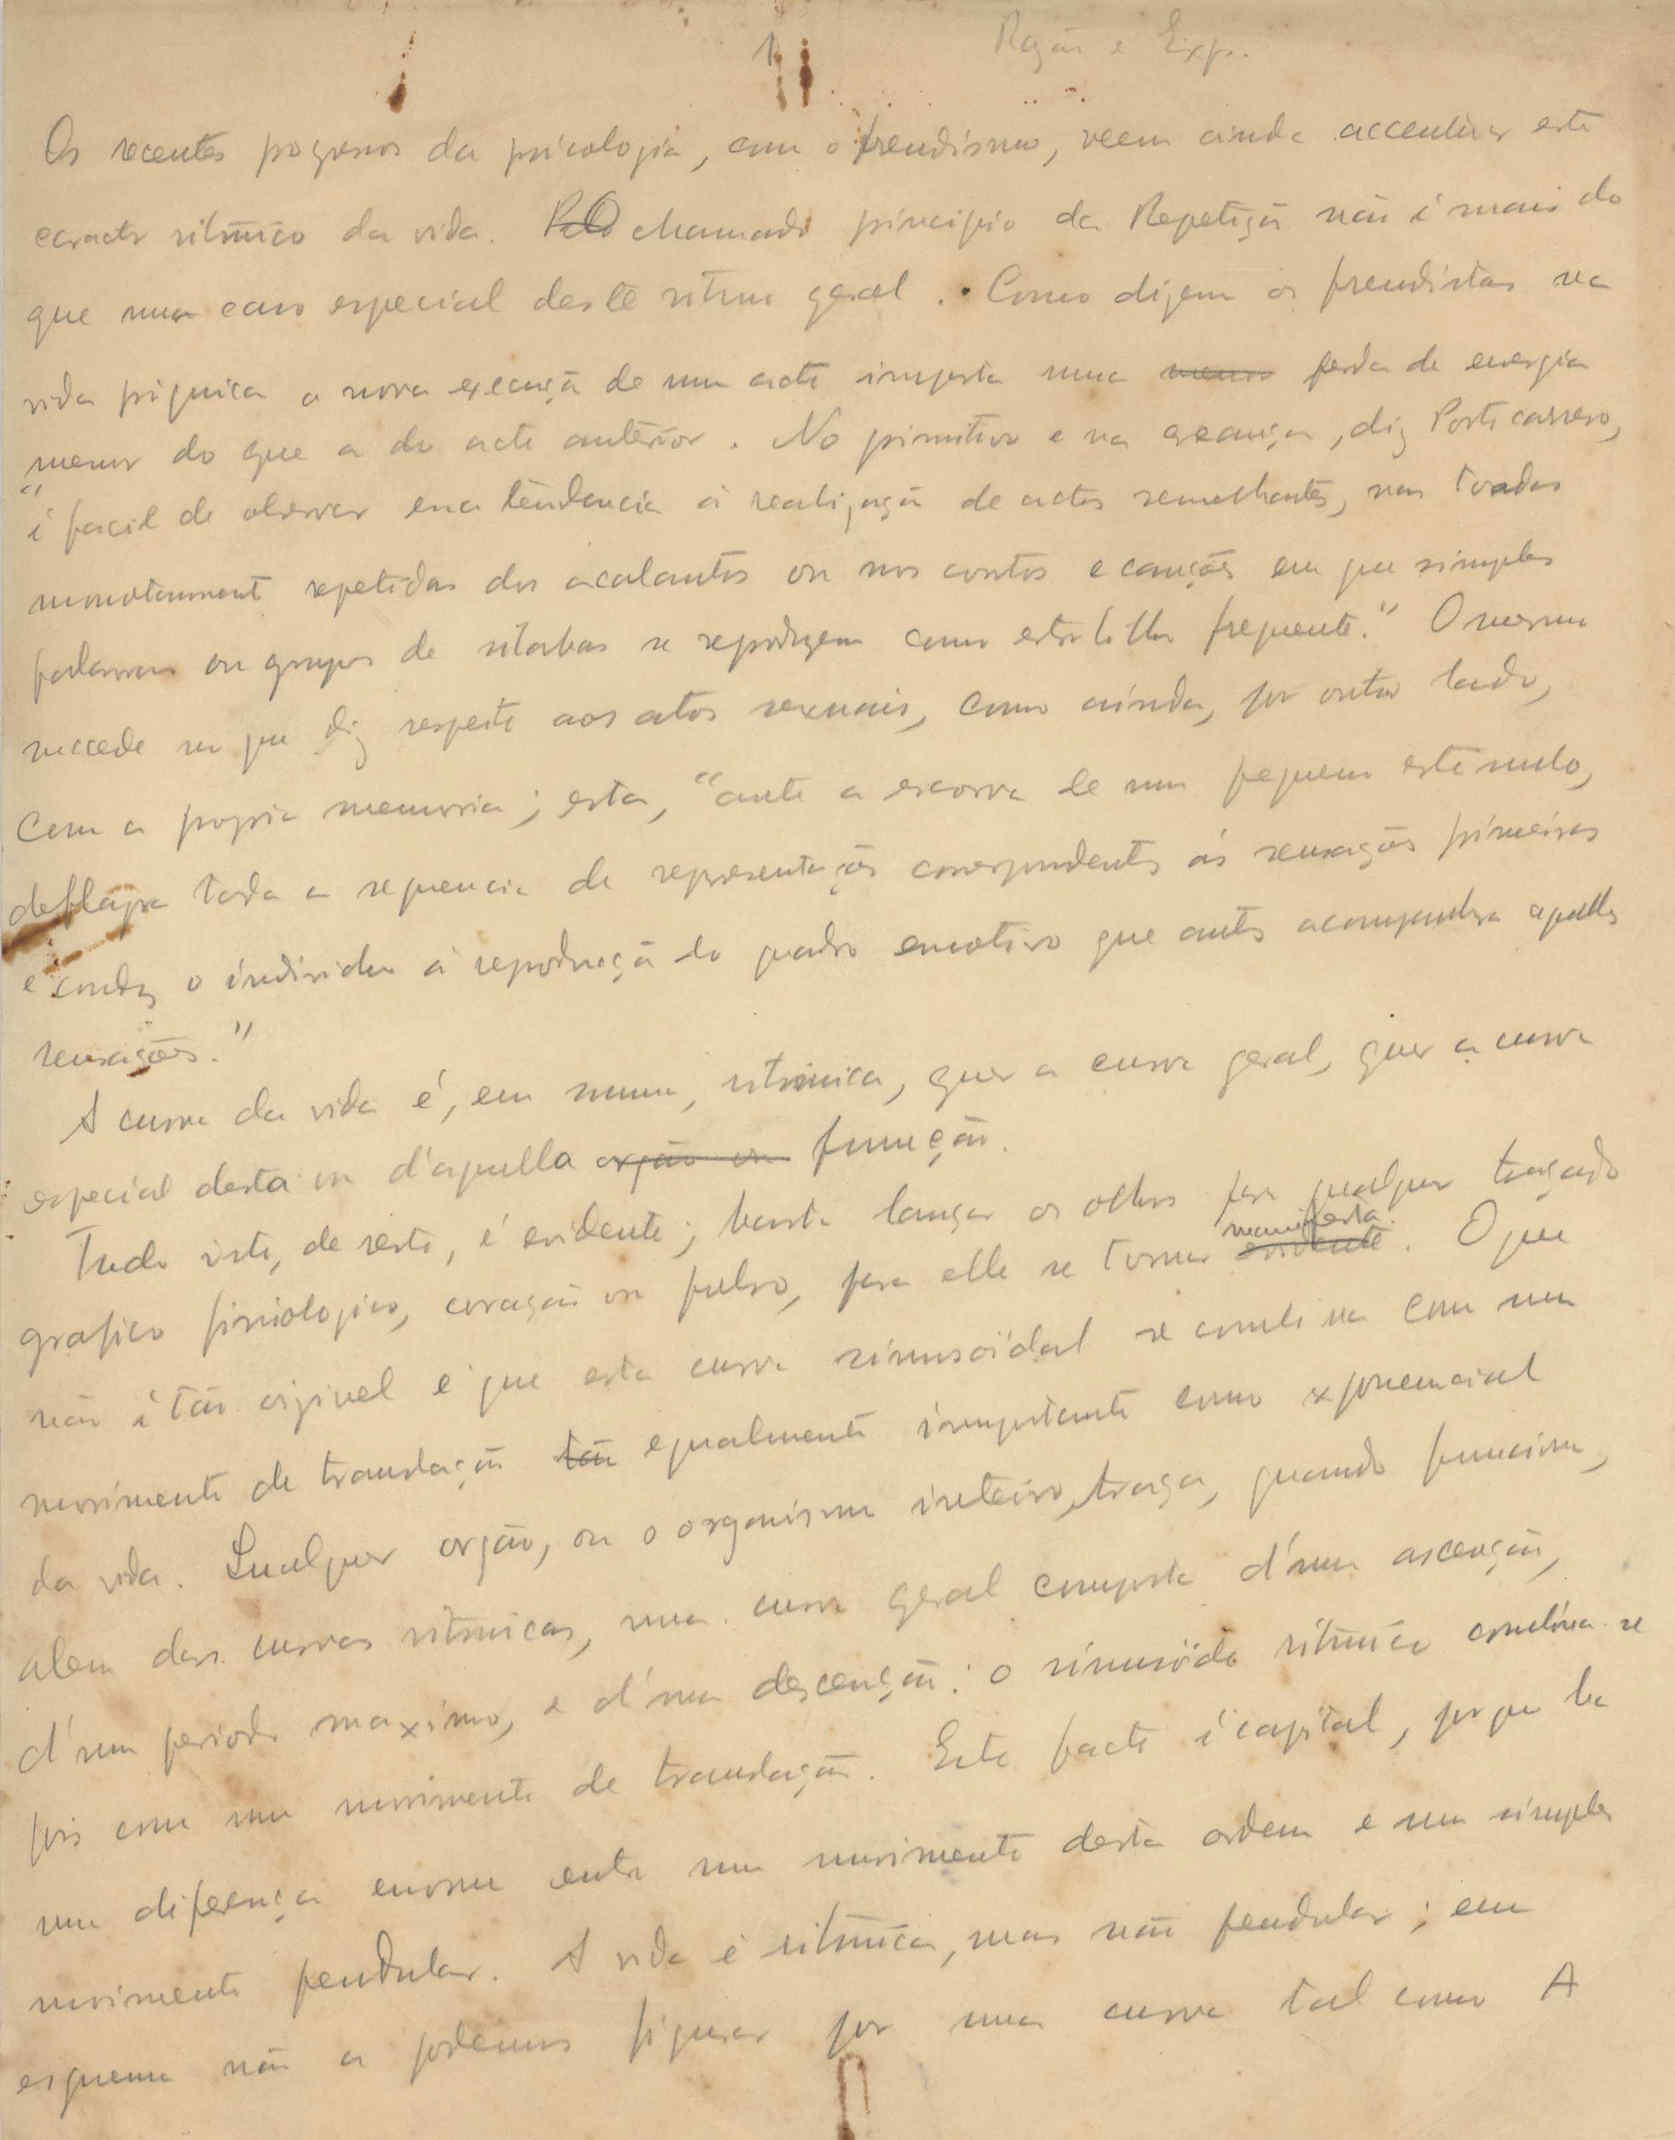 1
Razão e Exp.
Os recentes progressos da psicologia, com o freudismo, veem ainda accentuar este
caracter ritmico da vida. O chamado principio da Repetição não é mais do
que um caso especial deste ritmo geral. Como dizem os freudistas na
vida psiquica a nova execução de um acto importa uma menos perda de energia
menor do que a do acto anterior. No primitivo e na creança, diz Porto carrero,
"é facil de observar essa tendencia á realização de actos semelhantes, nas toadas
monotonamente repetidas dos acalantos ou nos contos e canções em que simples
palavras ou grupos de silabas se reproduzem como estribilho frequente." O mesmo
succede no que diz respeito aos atos sexuais, como ainda, por outro lado,
com a propria memoria; esta, "ante a escorva de um pequeno estimulo,
deflagra toda a sequencia de representações correspondentes ás sensações primeiras
e conduz o individuo á reprodução do quadro emotivo que antes acompanhara aquellas
sensações."
A curva da vida é, em suma, ritmica, quer a curva geral, quer a curva
especial desta ou d'aquella orgão ou função.
Tudo isto, de resto, é evidente; basta lançar os olhos para qualquer traçado
grafico fisiologico, coração ou pulso, para elle se tornar evidente manifesto. O que
não é tão visivel é que esta curva sinusoïdal se combina com um
movimento de translação tão egualmente importante como exponencial
da vida. Qualquer orgão, ou o organismo inteiro, traça, quando funciona,
alem das curvas ritmicas, uma curva geral composta d'uma ascenção,
d'um periodo maximo, e d'uma descenção: o sinusoïde ritmico combina-se
pois com um movimento de translação. Este facto é capital, porque ha
uma diferença enorme entre um movimento desta ordem e um simples
movimento pendular. A vida é ritmica, mas não pendular; em
esquema não a podemos figurar por uma curva tal como A